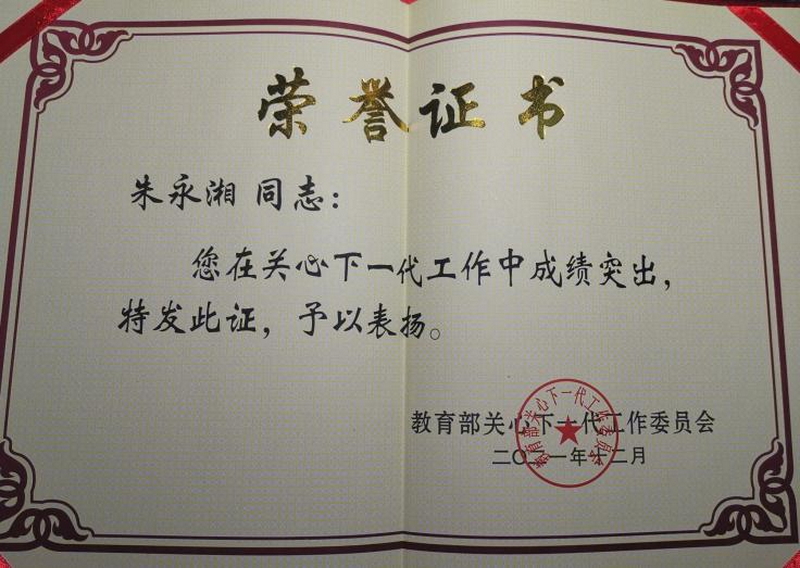 荣誉证书
朱永湘 同志：
您在关心下一代工作中成绩突出，
特发此证，予以表扬。
教育部关心下一代工作委员会
二〇二一年十二月
教育部关心下一代工作委员会